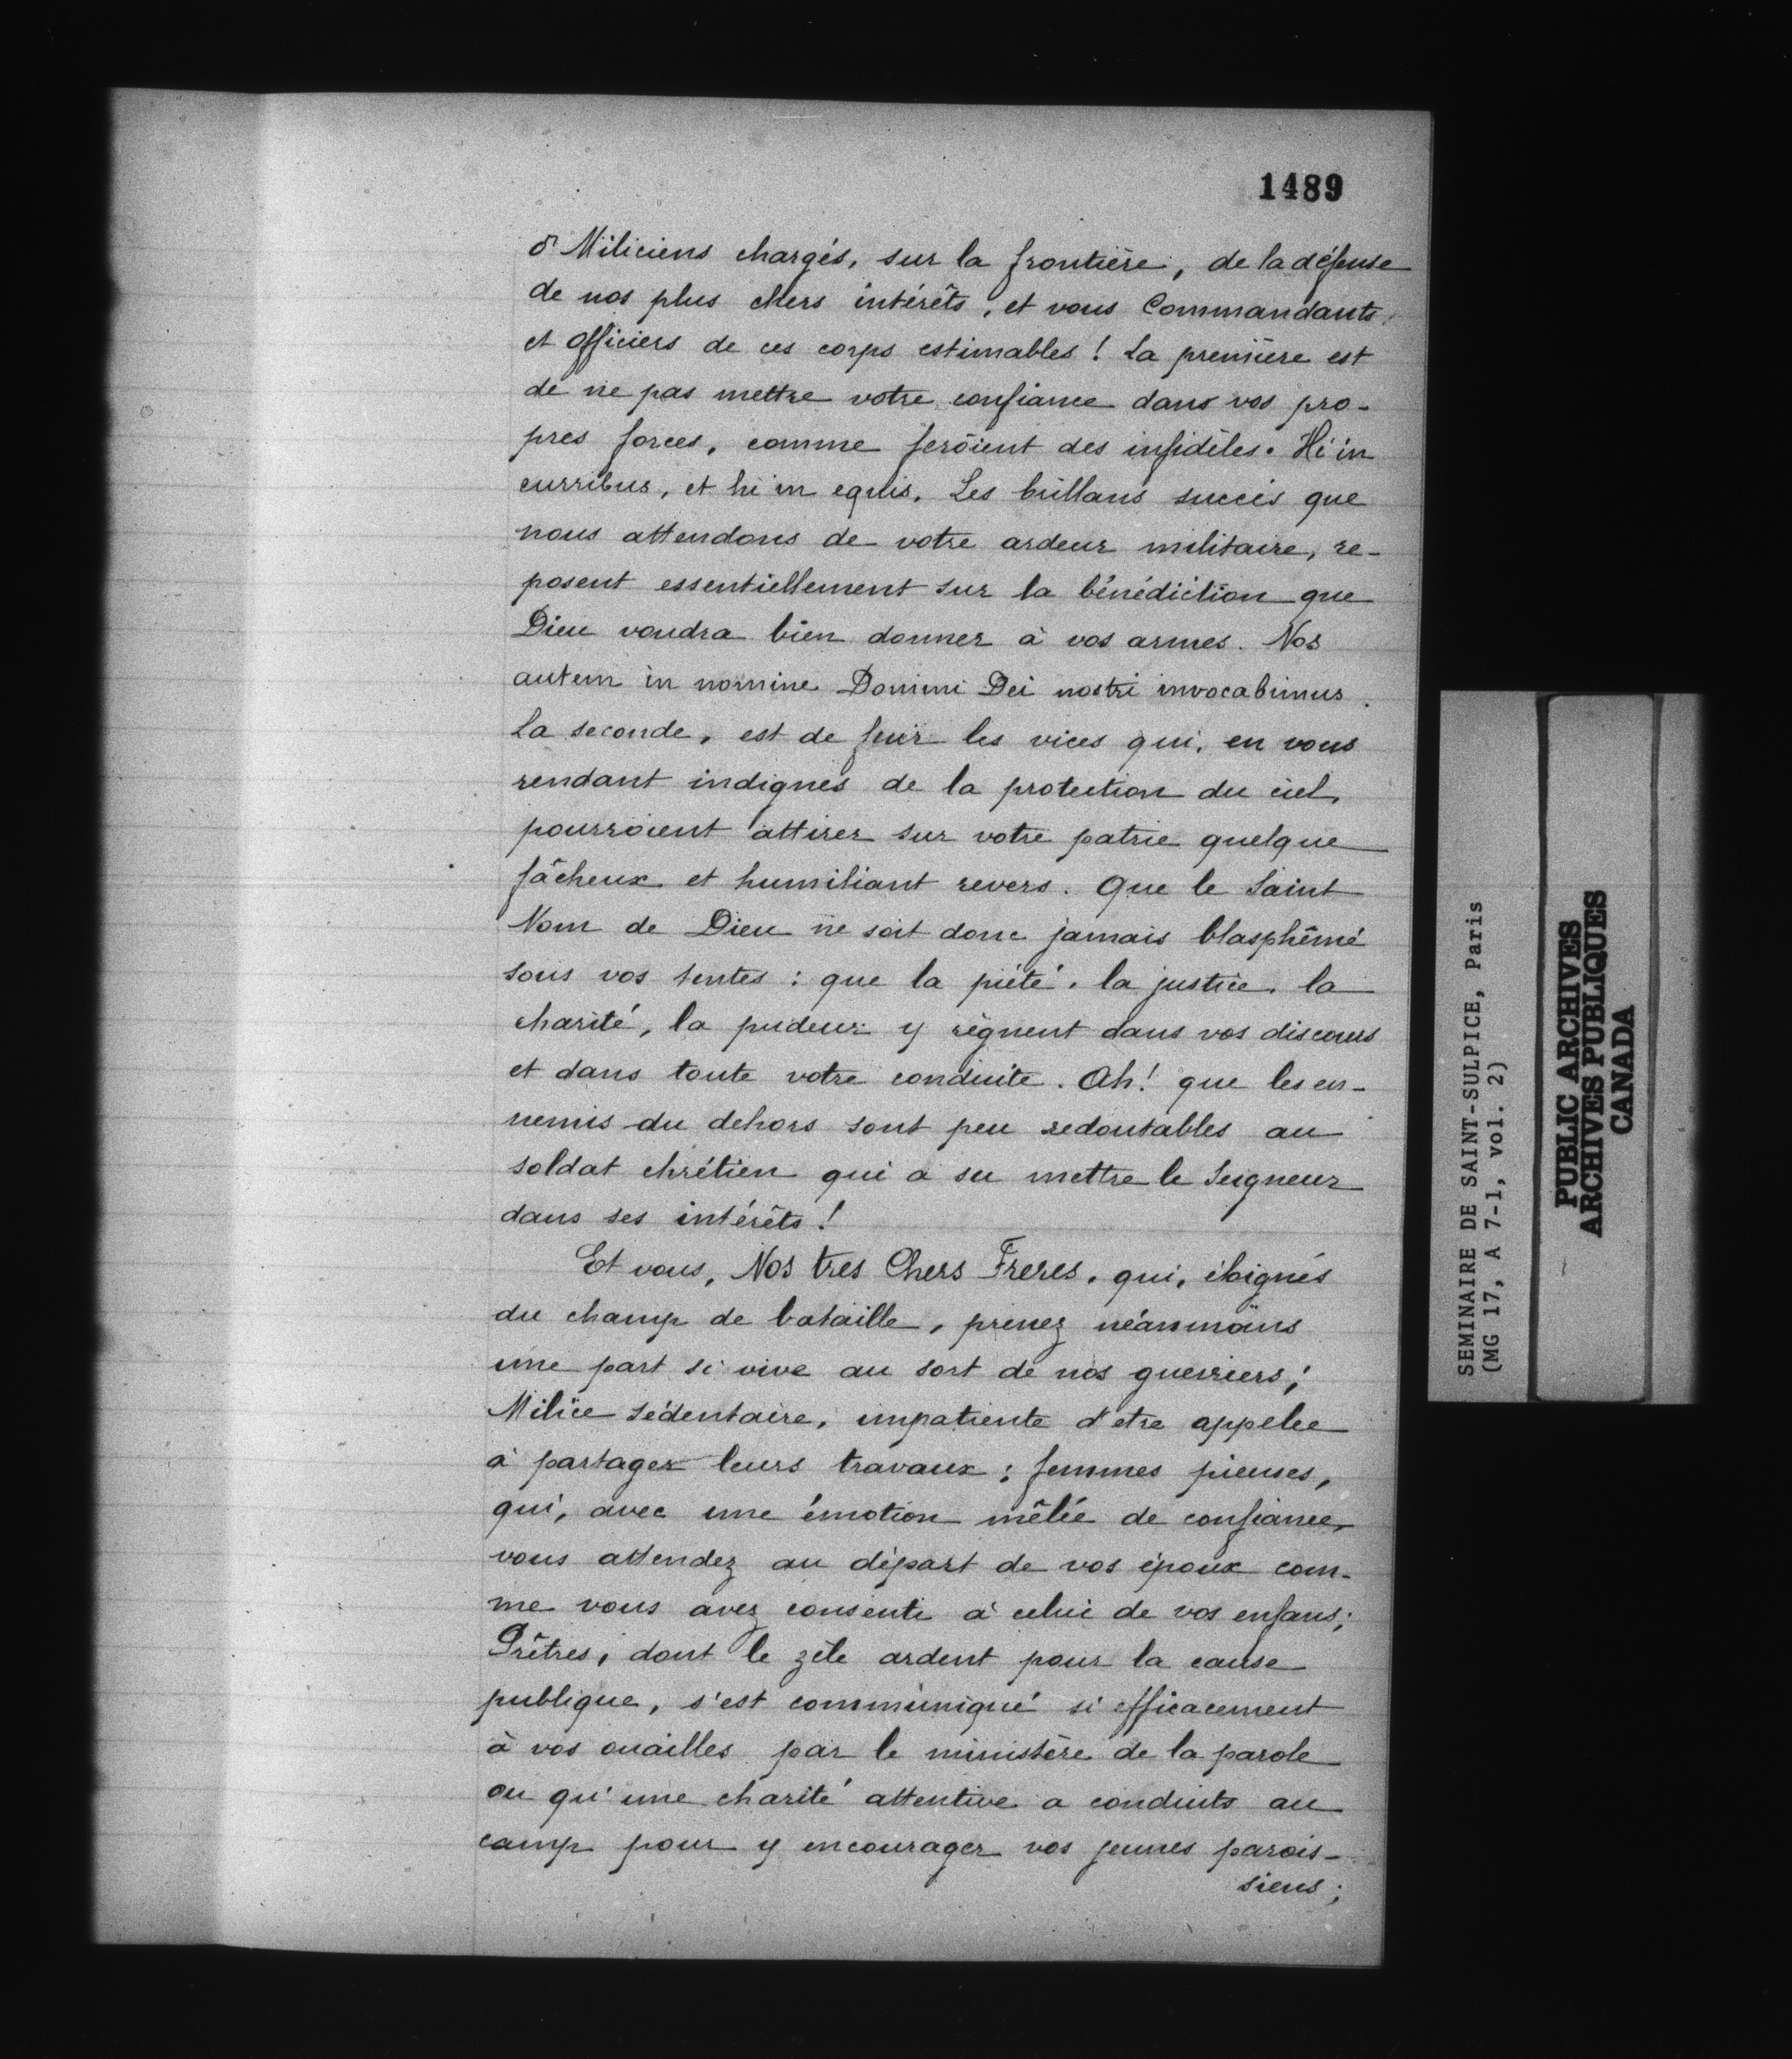 1489
ô Miliciens chargés, sur la frontière, de la défense
de nos plus chers intérêts, et vous Commandants
et Officiers de ces corps estimables ! La première est
de ne pas mettre votre confiance dans vos pro-
pres forces, comme feroient des infidèles. Hi in
curribus, et hi in equis. Les brillans succès que
nous attendons de votre ardeur militaire, re-
posent essentiellement sur la bénédiction que
Dieu voudra bien donner à vos armes. Nos
autem in nomine Domini Dei nostri invocabimus.
La seconde, est de fuir les vices qui, en vous
rendant indignes de la protection du ciel,
pourroient attirer sur votre patrie quelque
fâcheux et humiliant revers. Que le Saint
Nom de Dieu ne soit donc jamais blasphêmé
sous vos tentes : que la piété, la justice, la
charité, la pudeur y règnent dans vos discours
et dans toute votre conduite. Ah! que les en-
nemis du dehors sont peu redoutables au
soldat chrétien qui a su mettre le Seigneur
dans ses intérêts !
Et vous, Nos tres Chers Freres, qui, éloignés
du champ de bataille, prenez néanmoins
une part si vive au sort de nos guerriers ;
Milice sédentaire, impatiente d'etre appelée
à partager leurs travaux ; femmes pieuses,
qui, avec une émotion mêlée de confiance,
vous attendez au départ de vos époux com-
me vous avez consenti à celui de vos enfans ;
Prêtres, dont le zèle ardent pour la cause
publique, s'est communiqué si efficacement
à vos ouailles par le ministère de la parole
ou qu'une charité attentive a conduits au
camp pour y encourager vos jeunes parois-
siens ;
SEMINAIRE DE SAINT-SULPICE, Paris
(MG 17, A 7-1, vol. 2)
PUBLIC ARCHIVES
ARCHIVES PUBLIQUES
CANADA